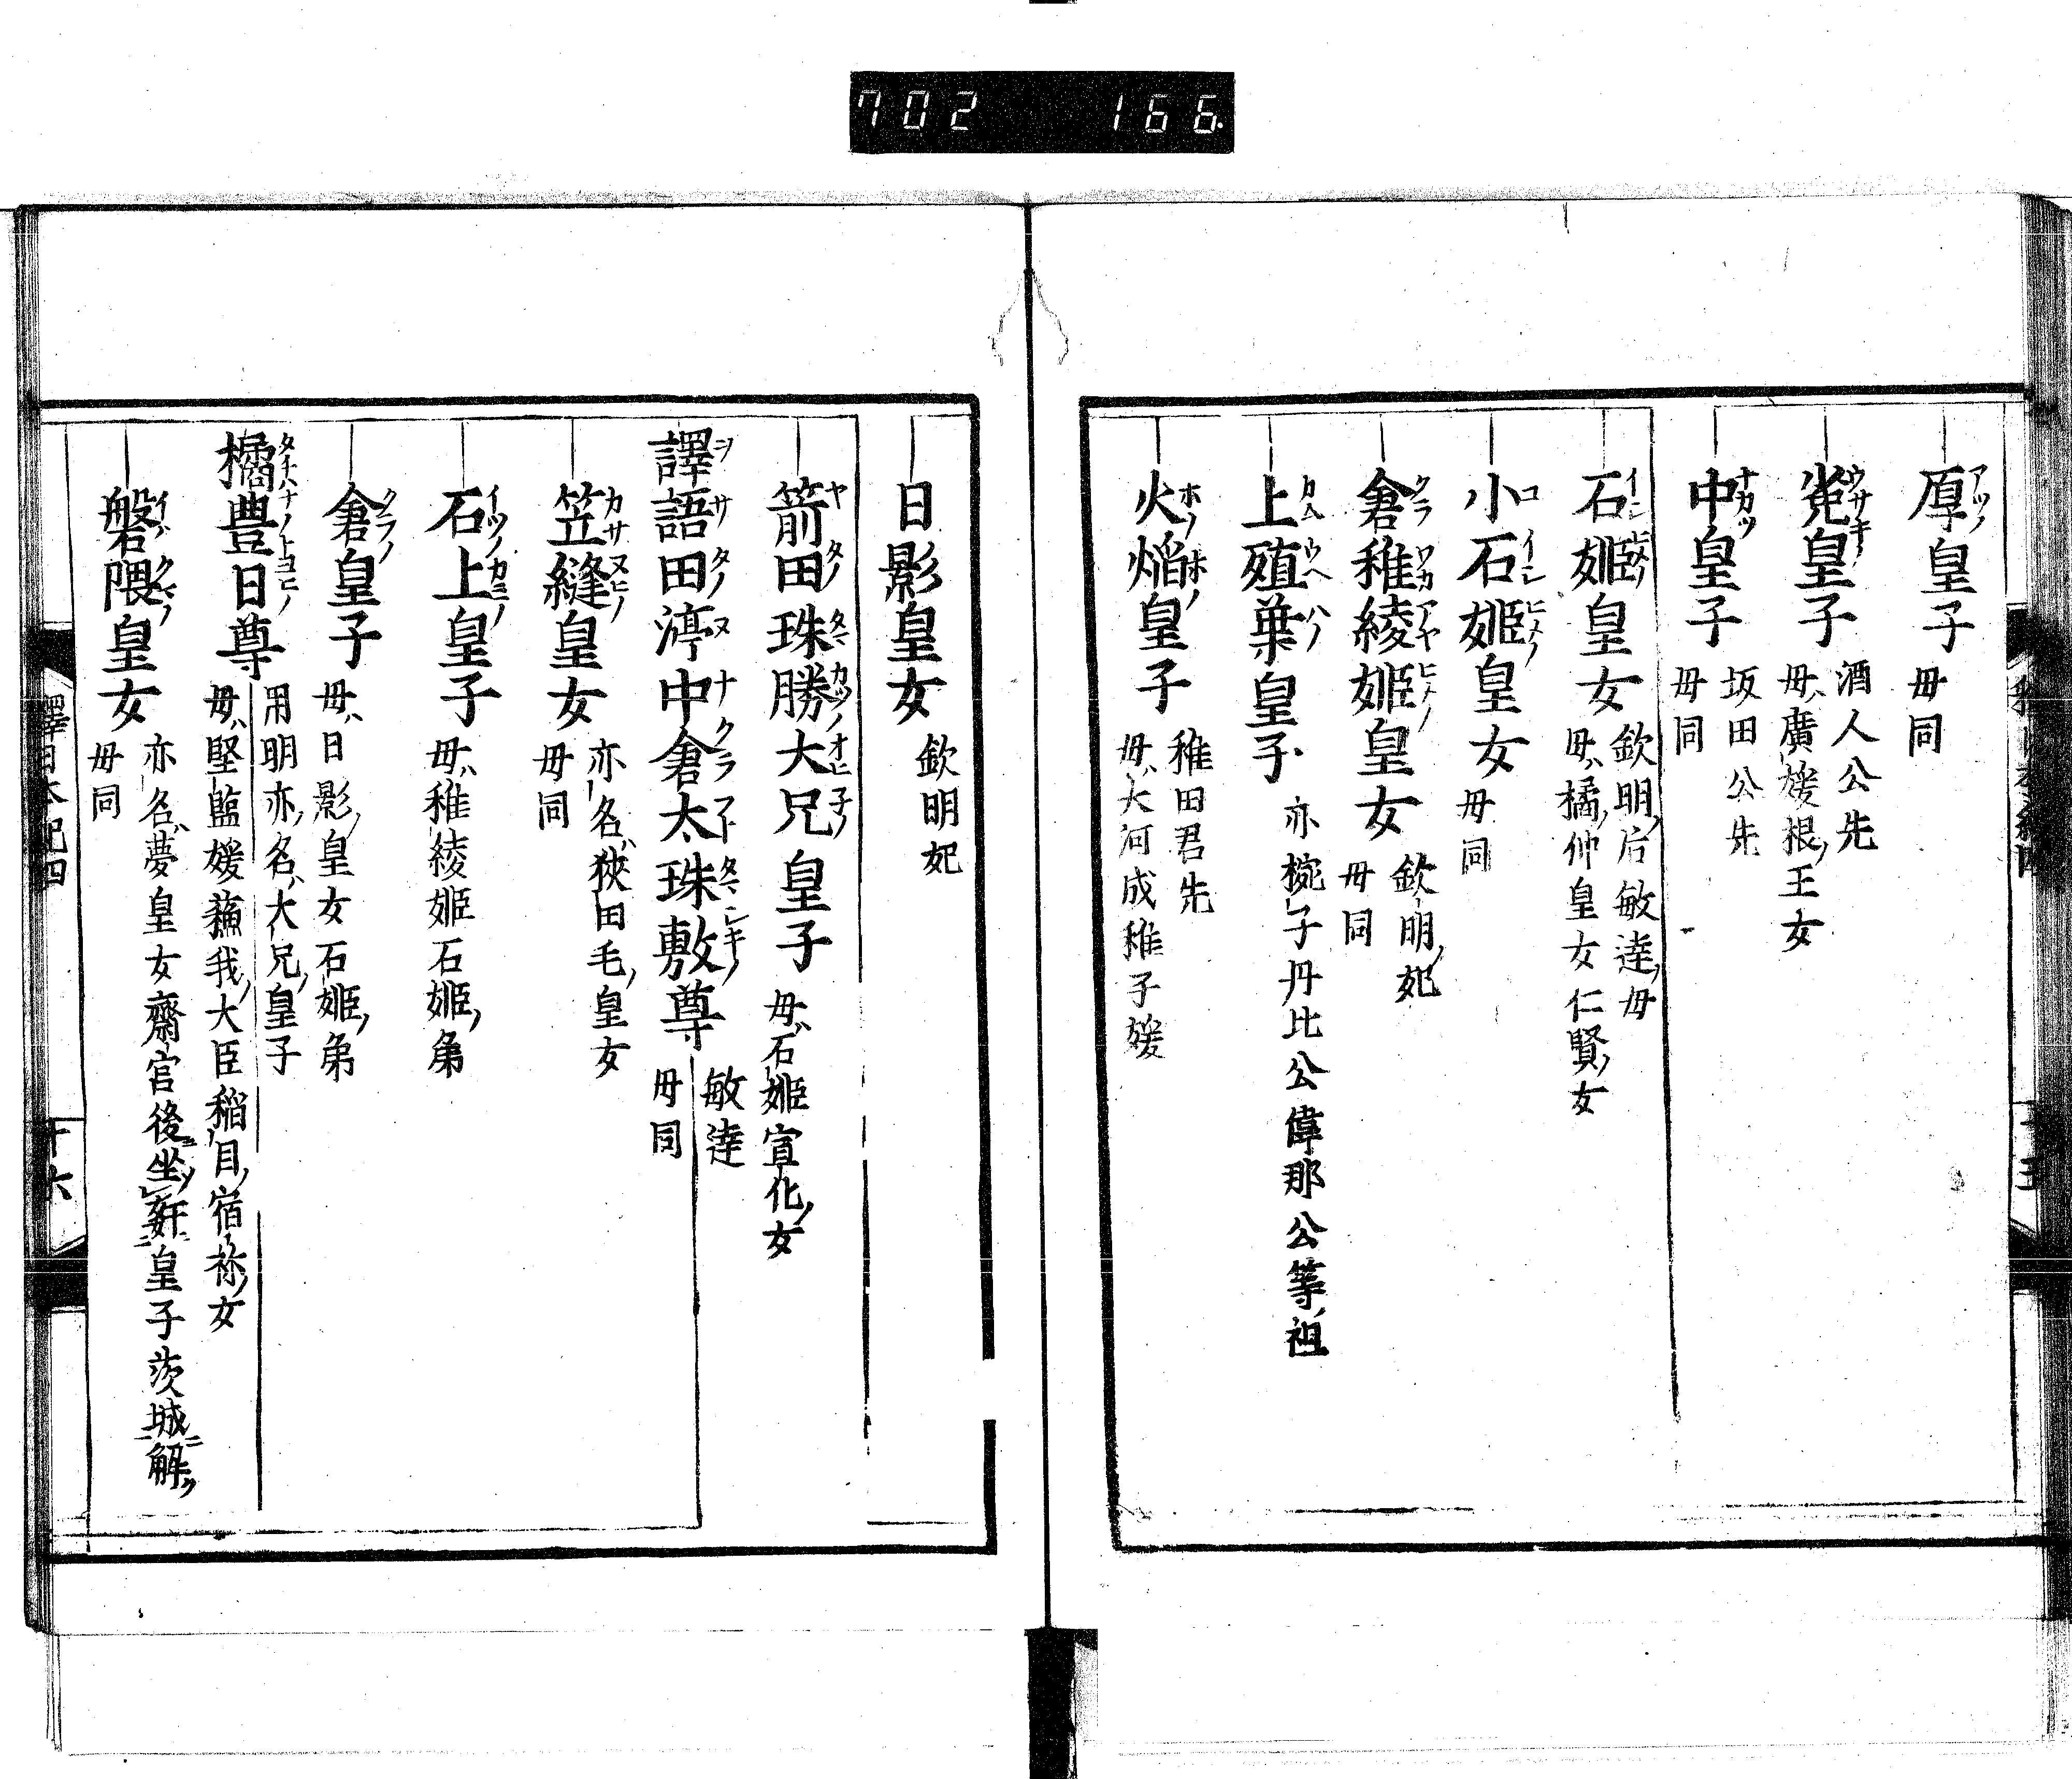 702 166
厚皇子 母同
菟皇子 酒人公先
母廣媛根王女
中皇子 坂田公先
母同
石姫皇女 欽明后敏達母
母橘仲皇女仁賢女
小石姫皇女 母同
倉稚綾姫皇女 欽明妃
母同
上殖葉皇子 亦椀子丹比公偉那公等祖
火焔皇子 稚田君先
母大河成稚子媛
日影皇女 欽明妃
箭田珠勝大兄皇子 母石姫宣化女
譯語田渟中倉太珠敷尊 敏達
母同
笠縫皇女 亦名狹田毛皇女
母同
石上皇子 母稚綾姫石姫弟
倉皇子 母日影皇女石姫弟
橘豊日尊 用明亦名大兄皇子
母堅監媛蘓我大臣稲目宿祢女
磐隈皇女 亦名夢皇女齋宮後坐姧皇子茨城解
母同
釋日本紀四
十六